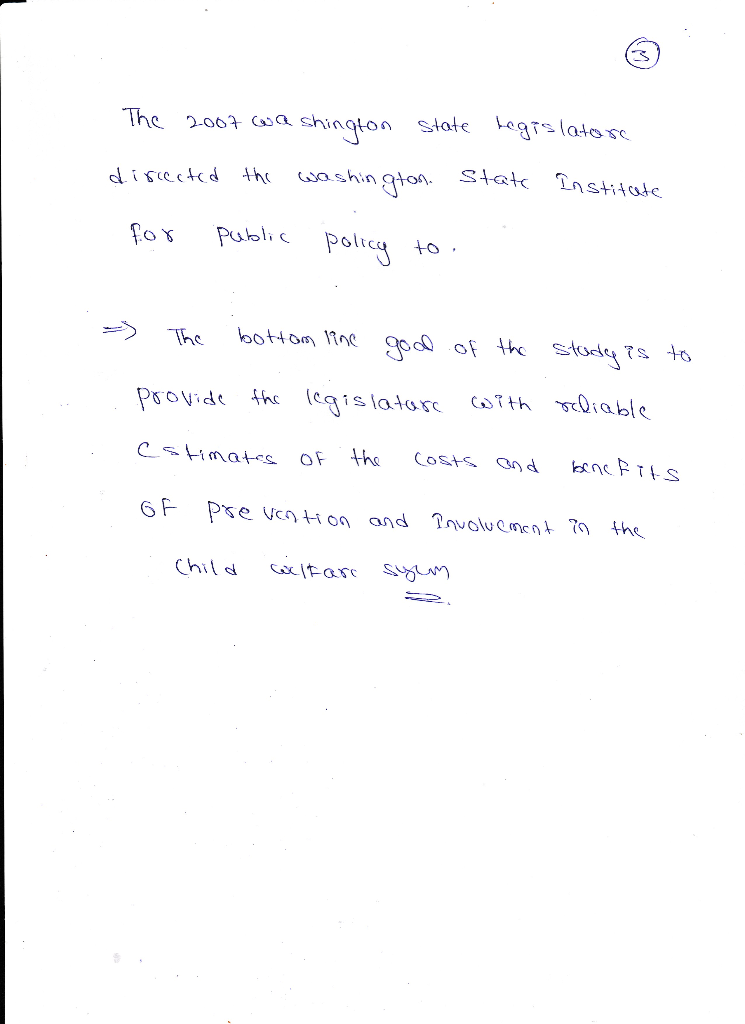 3
The 2007 washington state legislatore
directed the washington. State Institute
for public policy to.
=> The bottom line goal of the study is to
provide the legislature with reliable
estimates of the costs and benefits
of prevention and Involvement in the
Child welfare